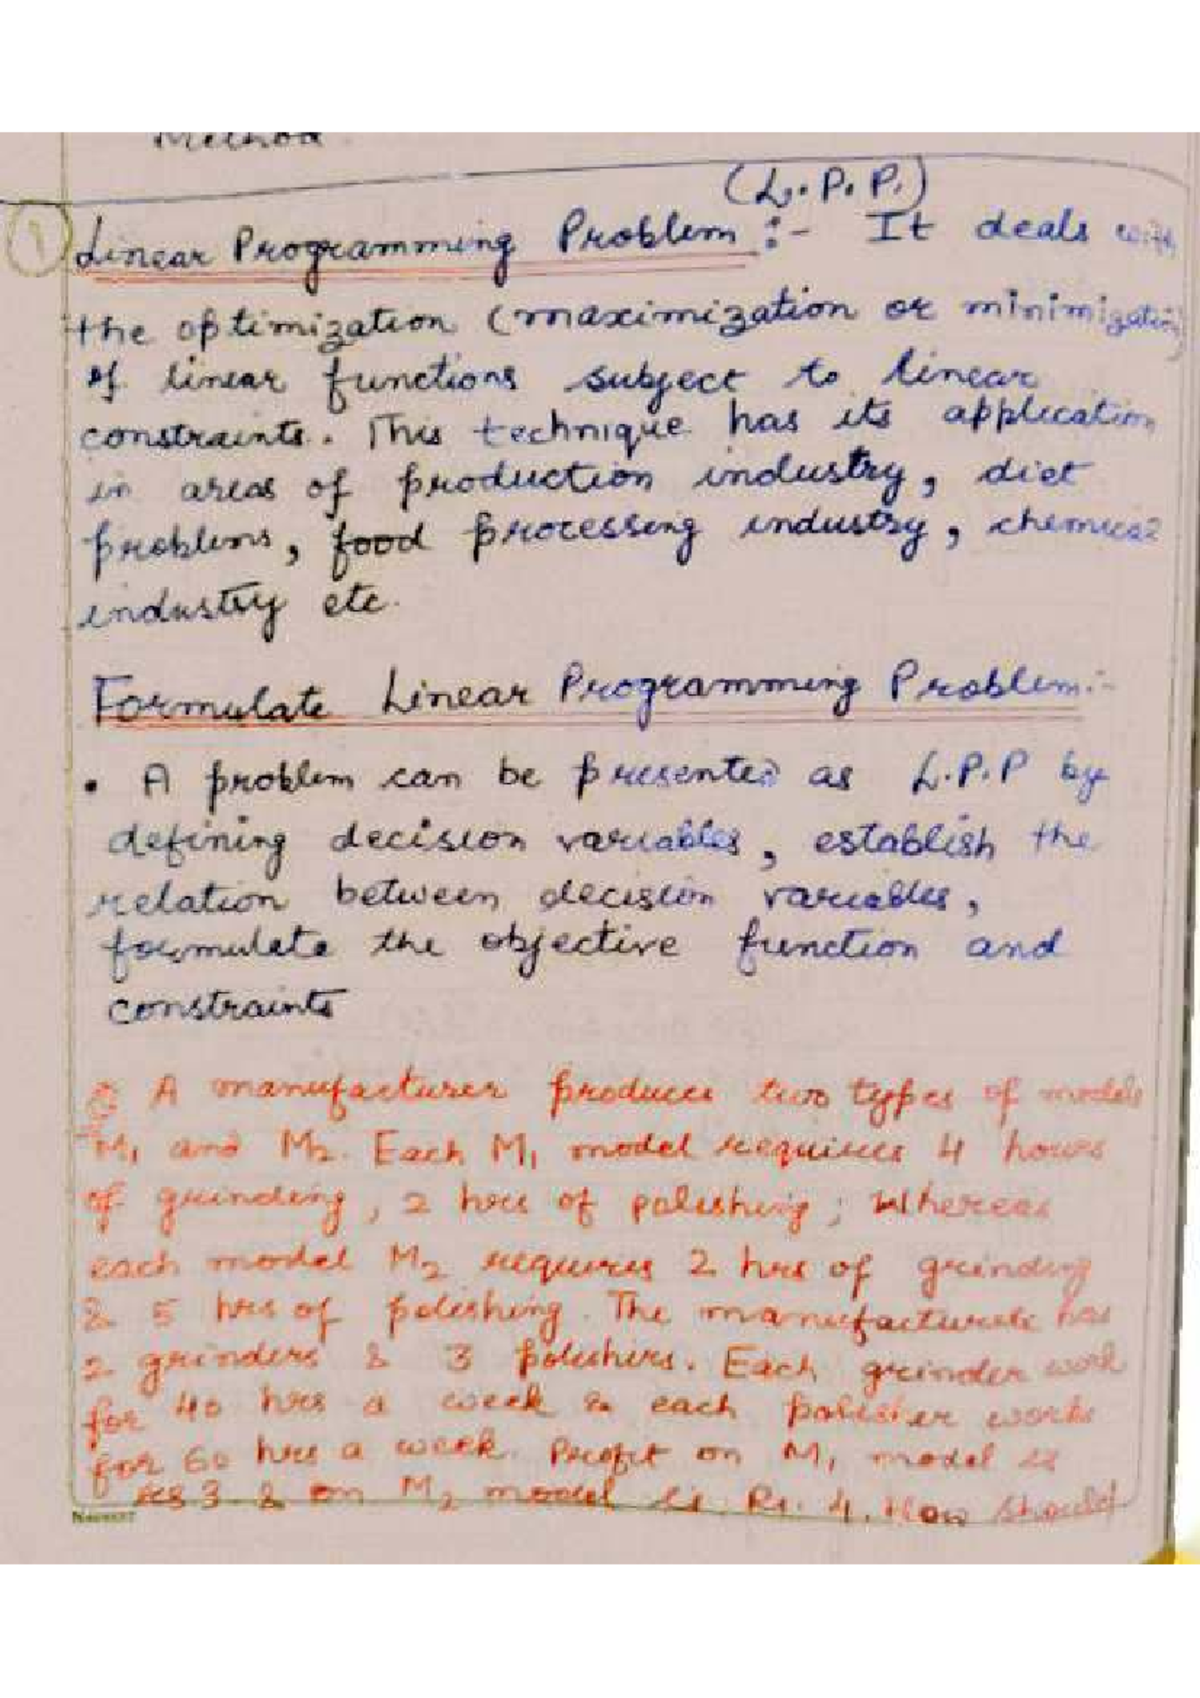 Method
(L.P.P.)
1 Linear Programming Problem :- It deals with
the optimization (maximization or minimization)
of linear functions subject to linear
constraints. This technique has its application
in areas of production industry, diet
problems, food processing industry, chemical
industry etc.
Formulate Linear Programming Problem:-
• A problem can be presented as L.P.P by
defining decision variables, establish the
relation between decision variables,
formulate the objective function and
constraints
Q A manufacturer produces two types of models
M1 and M2. Each M1 model requires 4 hours
of grinding, 2 hrs of polishing; Whereas
each model M2 requires 2 hrs of grinding
& 5 hrs of polishing. The manufacturer has
2 grinders & 3 polishers. Each grinder work
for 40 hrs a week & each polisher works
for 60 hrs a week. Profit on M1 model is
Rs 3 & on M2 model is Rs. 4. How should